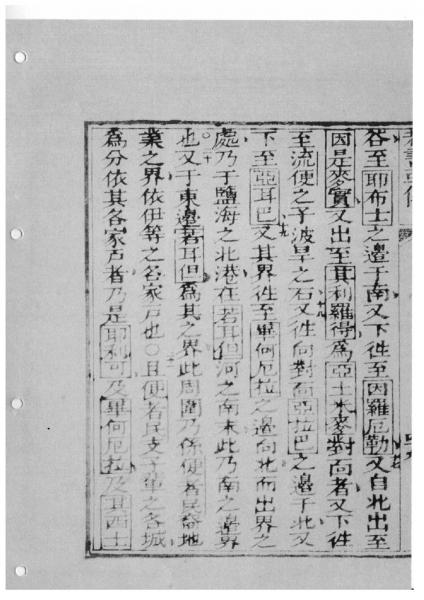 谷至耶布士之邊于南又下徃至因羅厄勒又自北出至
因是麥實又出至其利羅得為亞土米麥對向者又下徃
至流便之子波旱之石又徃向對面亞拉巴之邊于北又
下至亞耳巴又其界徃至畢何厄拉之邊向北而出界之
處乃于鹽海之北港在若耳但河之南末此乃南之邊界
也又于東邊若耳但為其之界此周圍乃係便者民嗇地
業之界依伊等之各家戶也○且便者民支子輩之各城
為分依其各家戶者乃是耶利可及畢何厄拉及其西士